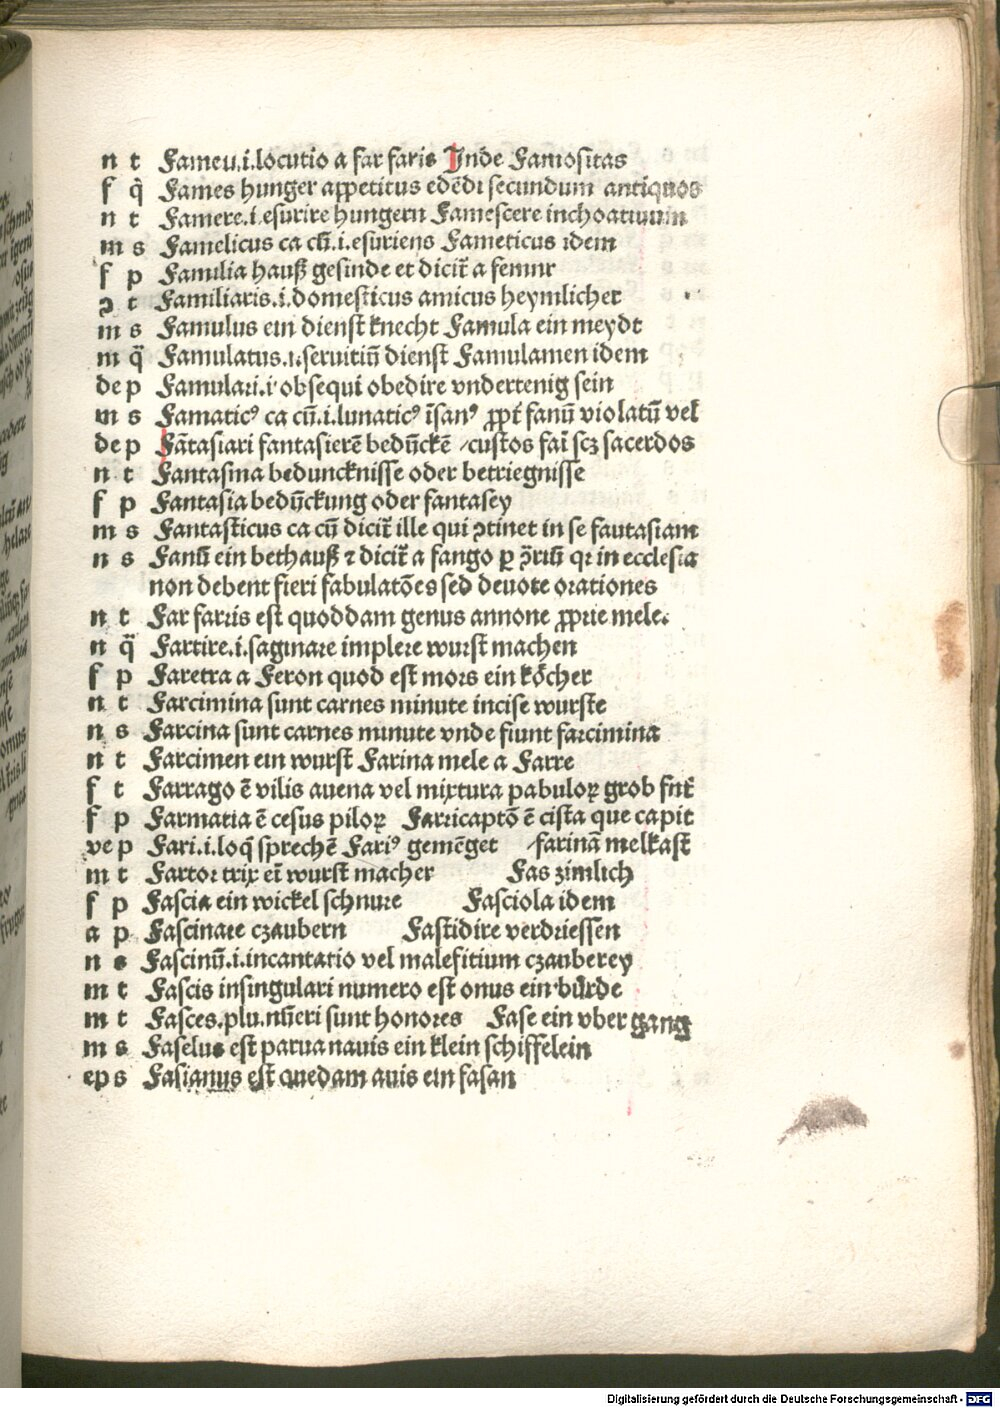 n t Fameu.i.locutio a far faris Inde Famositas
f q̄ Fames hunger appetitus edēdi secundum antiquos
n t Famere.i.esurire hungern Famescere inchoatiuum
m s Famelicus ca cū.i.esuriens Fameticus idem
f p Familia hauß gesinde et dicit̄ a femur
ꝯ t Familiaris.i.domesticus amicus heymlicher
m s Famulus ein dienst knecht Famula ein meydt
m q̄ Famulatus.i.seruitiū dienst Famulamen idem
de p Famulari.i obsequi obedire vndertenig sein
m s Famaticꝰ ca cū.i.lunaticꝰ īsanꝰ ꝓpt̄ fanū violatū vel
de p Fātasiari fantasierē bedūckē /custos fai scꝫ sacerdos
n t Fantasma beduncknisse oder betriegnisse
f p Fantasia bedūckung oder fantasey
m s Fantasticus ca cū dicit̄ ille qui ꝯtinet in se fautasiam
n s Fanū ein bethauß ⁊ dicit̄ a fango ꝑ ꝯ̄riū qꝛ in ecclesia
non debent fieri fabulatōes sed deuote orationes
n t Far farris est quoddam genus annone ꝓprie mele.
n q̄ Fartire.i.saginare implere wurst machen
f p Faretra a Feron quod est mors ein köcher
n t Farcimina sunt carnes minute incise wurste
n s Farcina sunt carnes minute vnde fiunt farcimina
n t Farcimen ein wurst Farina mele a Farre
f t Farrago ē vilis auena vel mixtura pabuloꝝ grob fut̄
f p Farmatia ē cesus piloꝝ Farricaptō ē cista que capit
ve p Fari.i.loq̄ sprechē Fariꝰ gemēget /farinā melkast
m t Fartor trix eī wurst macher Fas zimlich
f p Fascia ein wickel schnure Fasciola idem
a p Fascinare czaubern Fastidire verdriessen
n s Fascinū.i.incantatio vel malefitium czauberey
m t Fascis insingulari numero est onus ein bůrde
m t Fasces.plu.nūeri sunt honores Fase ein vber gang
m s Faselus est parua nauis ein klein schiffelein
ep s Fasianus est quedam auis ein fasan
Digitalisierung gefördert durch die Deutsche Forschungsgemeinschaft - DFG